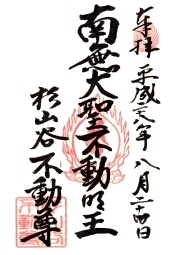 奉拝 平成二八年 八月二十四日
南無大聖不動明王
杉山谷不動尊